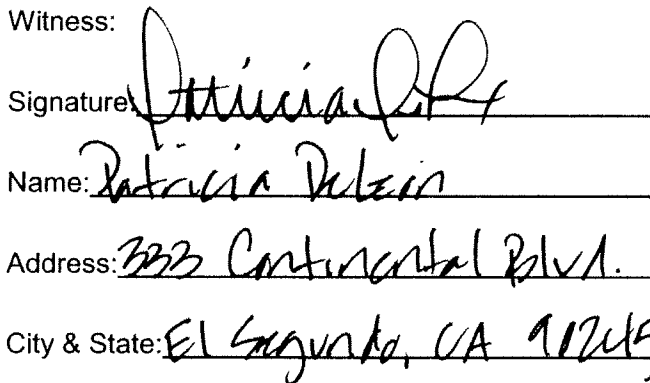 Witness:
Signature: Patricia
Name: Patricia DeLeon
Address: 333 Continental Blvd.
City & State: El Segundo, CA 90245